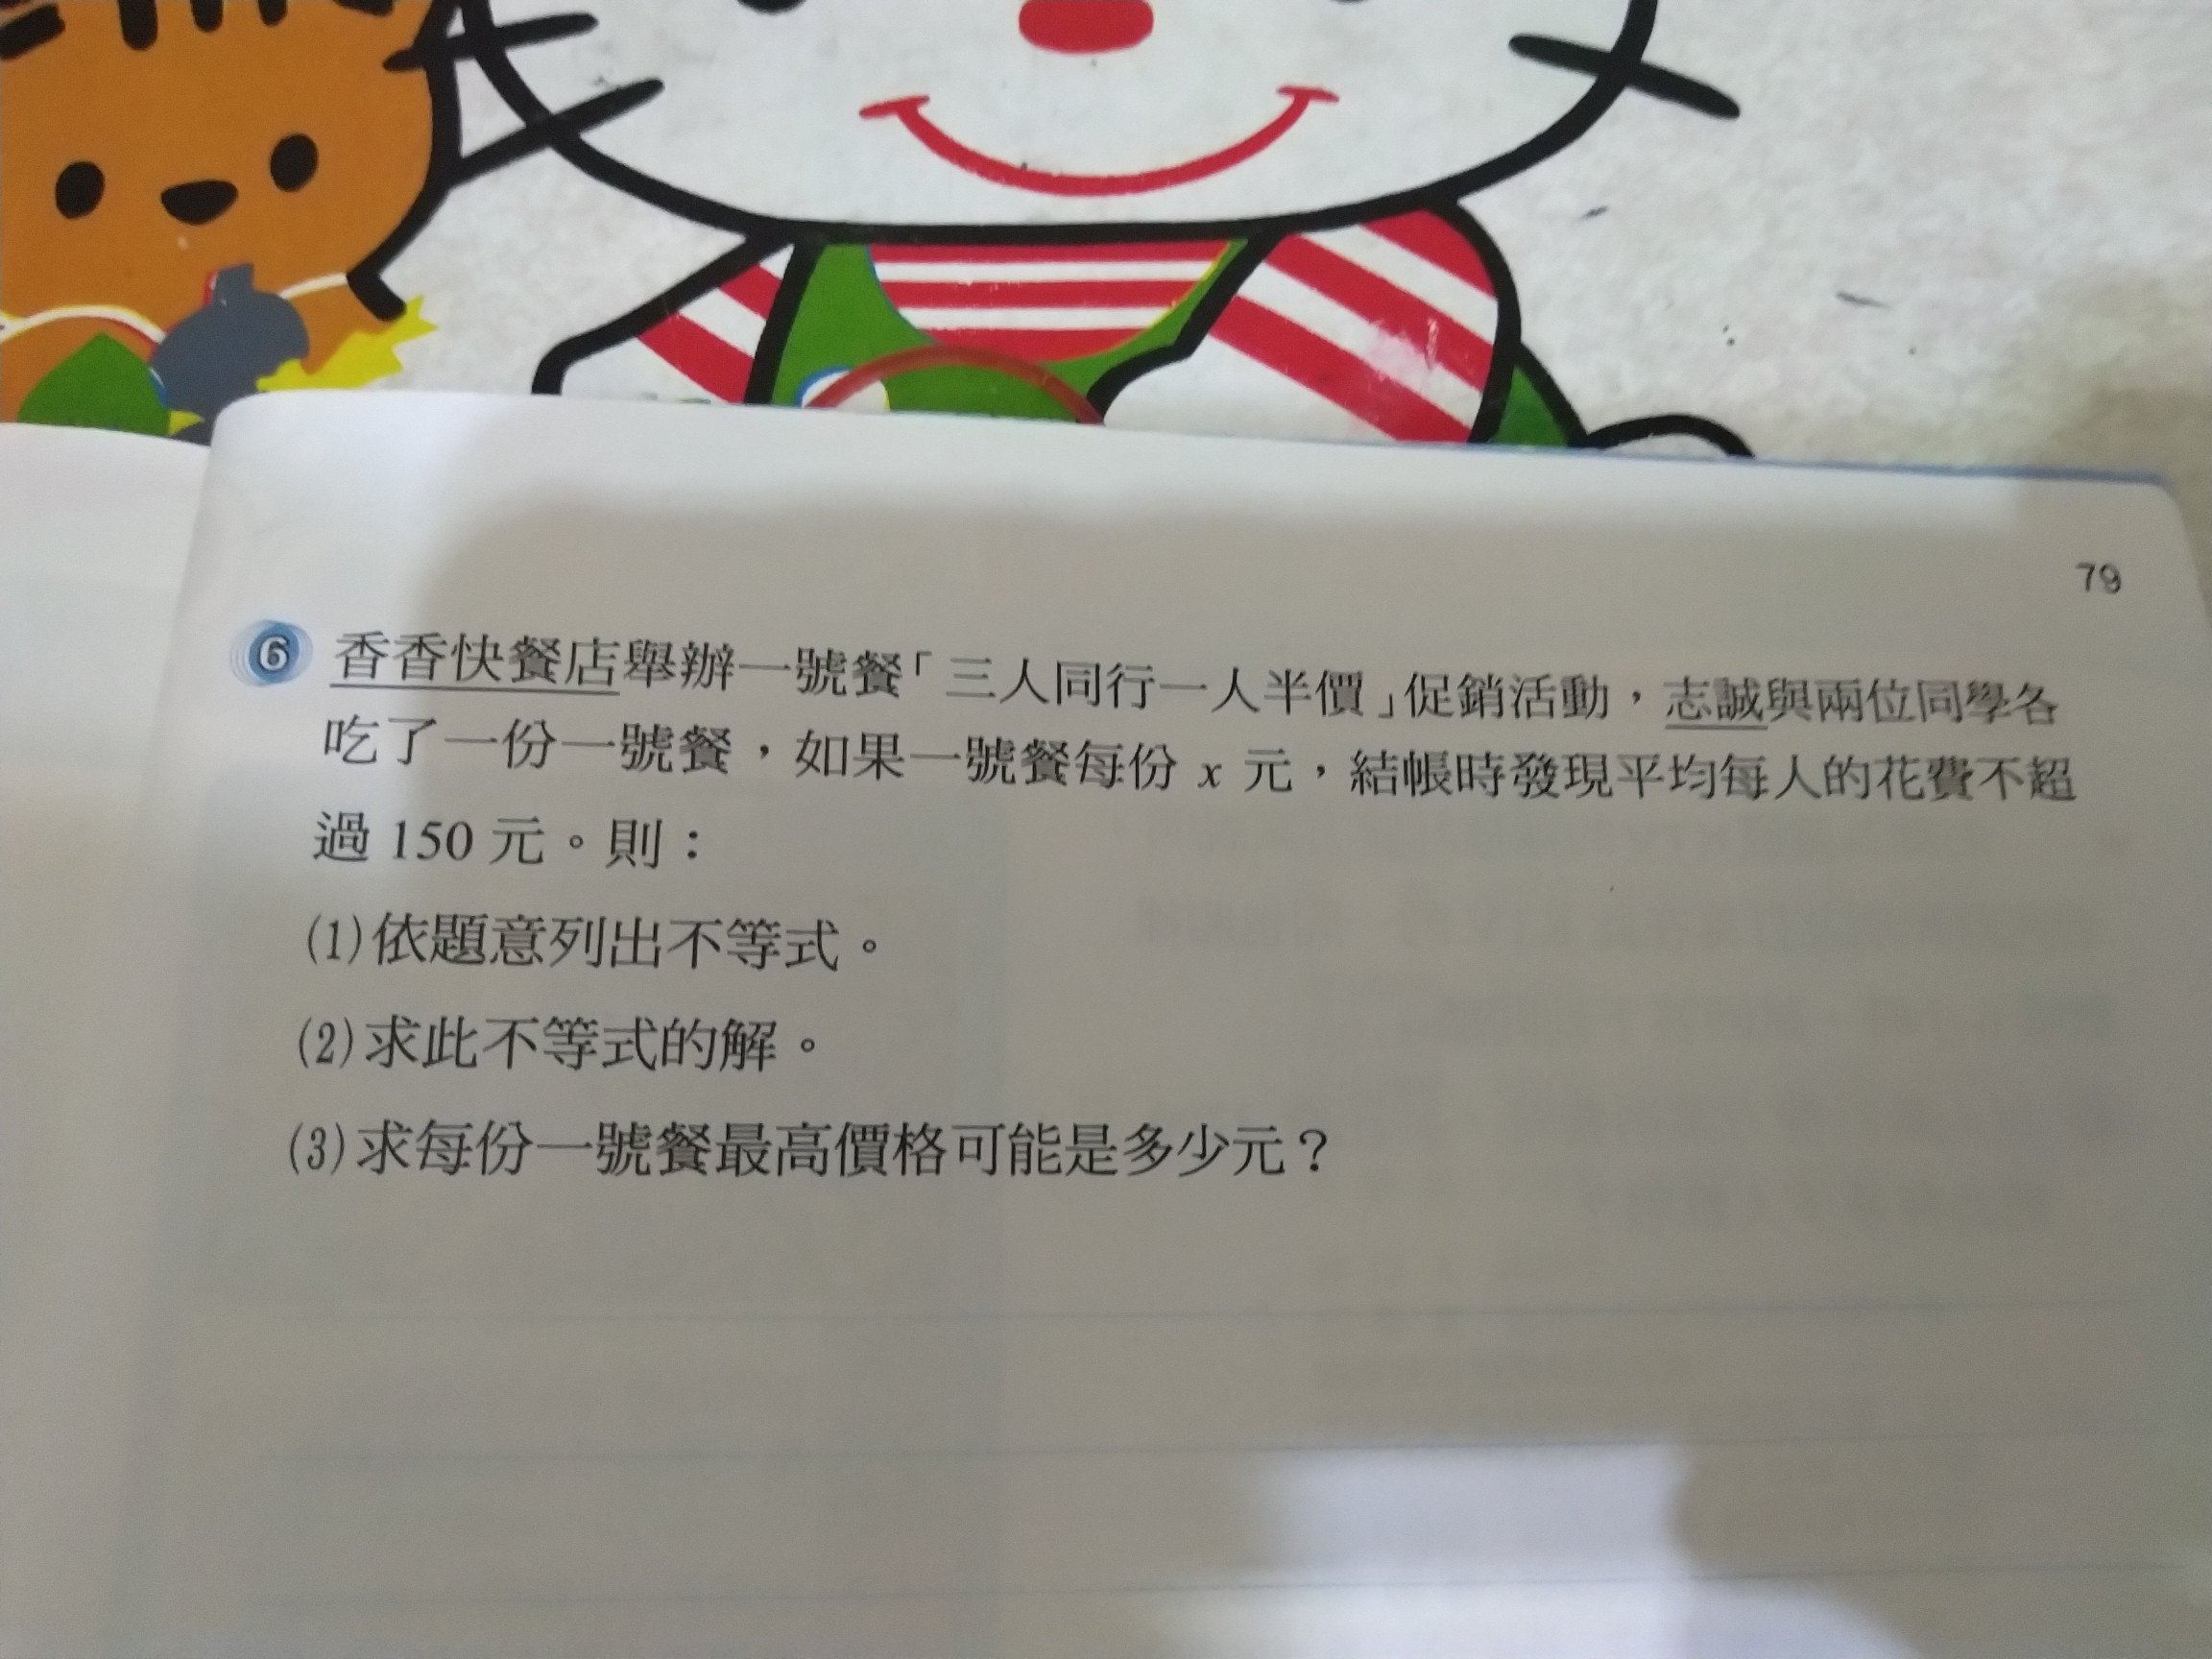 79
6 香香快餐店舉辦一號餐「三人同行一人半價」促銷活動,志誠與兩位同學各
吃了一份一號餐,如果一號餐每份 x 元,結帳時發現平均每人的花費不超
過 150 元。則:
(1)依題意列出不等式。
(2)求此不等式的解。
(3)求每份一號餐最高價格可能是多少元?